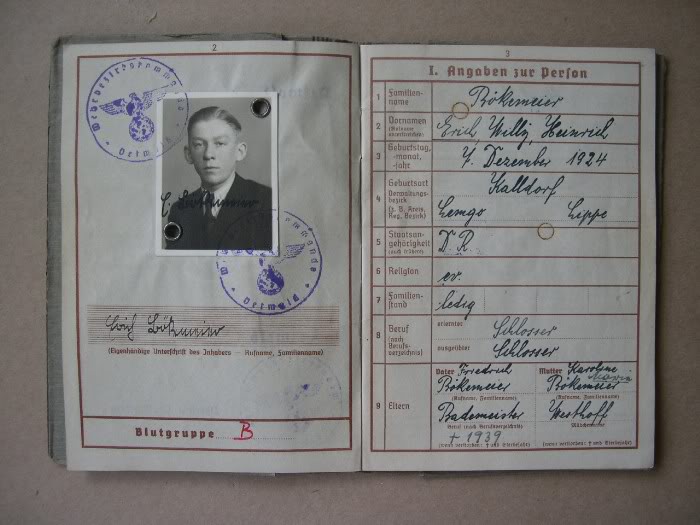 2
Wehrbezirkskommando
Detmold
E. Bökemeier
Wehrbezirkskommando
Detmold
Erich Bökemeier
(Eigenhändige Unterschrift des Inhabers — Rufname, Familienname)
Blutgruppe B
3
I. Angaben zur Person
1 Familien-
name
Bökemeier
2 Vornamen
(Rufname
unterstreichen)
Erich Willy, Heinrich
3 Geburtstag,
-monat,
-jahr
4. Dezember 1924
4 Geburtsort
Verwaltungs-
bezirk
(z. B. Kreis,
Reg. Bezirk)
Kalldorf
Lemgo Lippe
5 Staatsan-
gehörigkeit
(auch frühere)
D. R.
6 Religion
ev.
7 Familien-
stand
ledig
8 Beruf
(nach
Berufs-
verzeichnis)
erlernter
Schlosser
ausgeübter
Schlosser
9 Eltern
Vater Friedrich
Bökemeier
(Rufname, Familienname)
Bademeister
Beruf (nach Berufsverzeichnis)
† 1939
(wenn verstorben: † und Sterbejahr)
Mutter Karoline
Bökemeier
(Rufname, Familienname)
Westhoff
Mädchenname
(wenn verstorben: † und Sterbejahr)